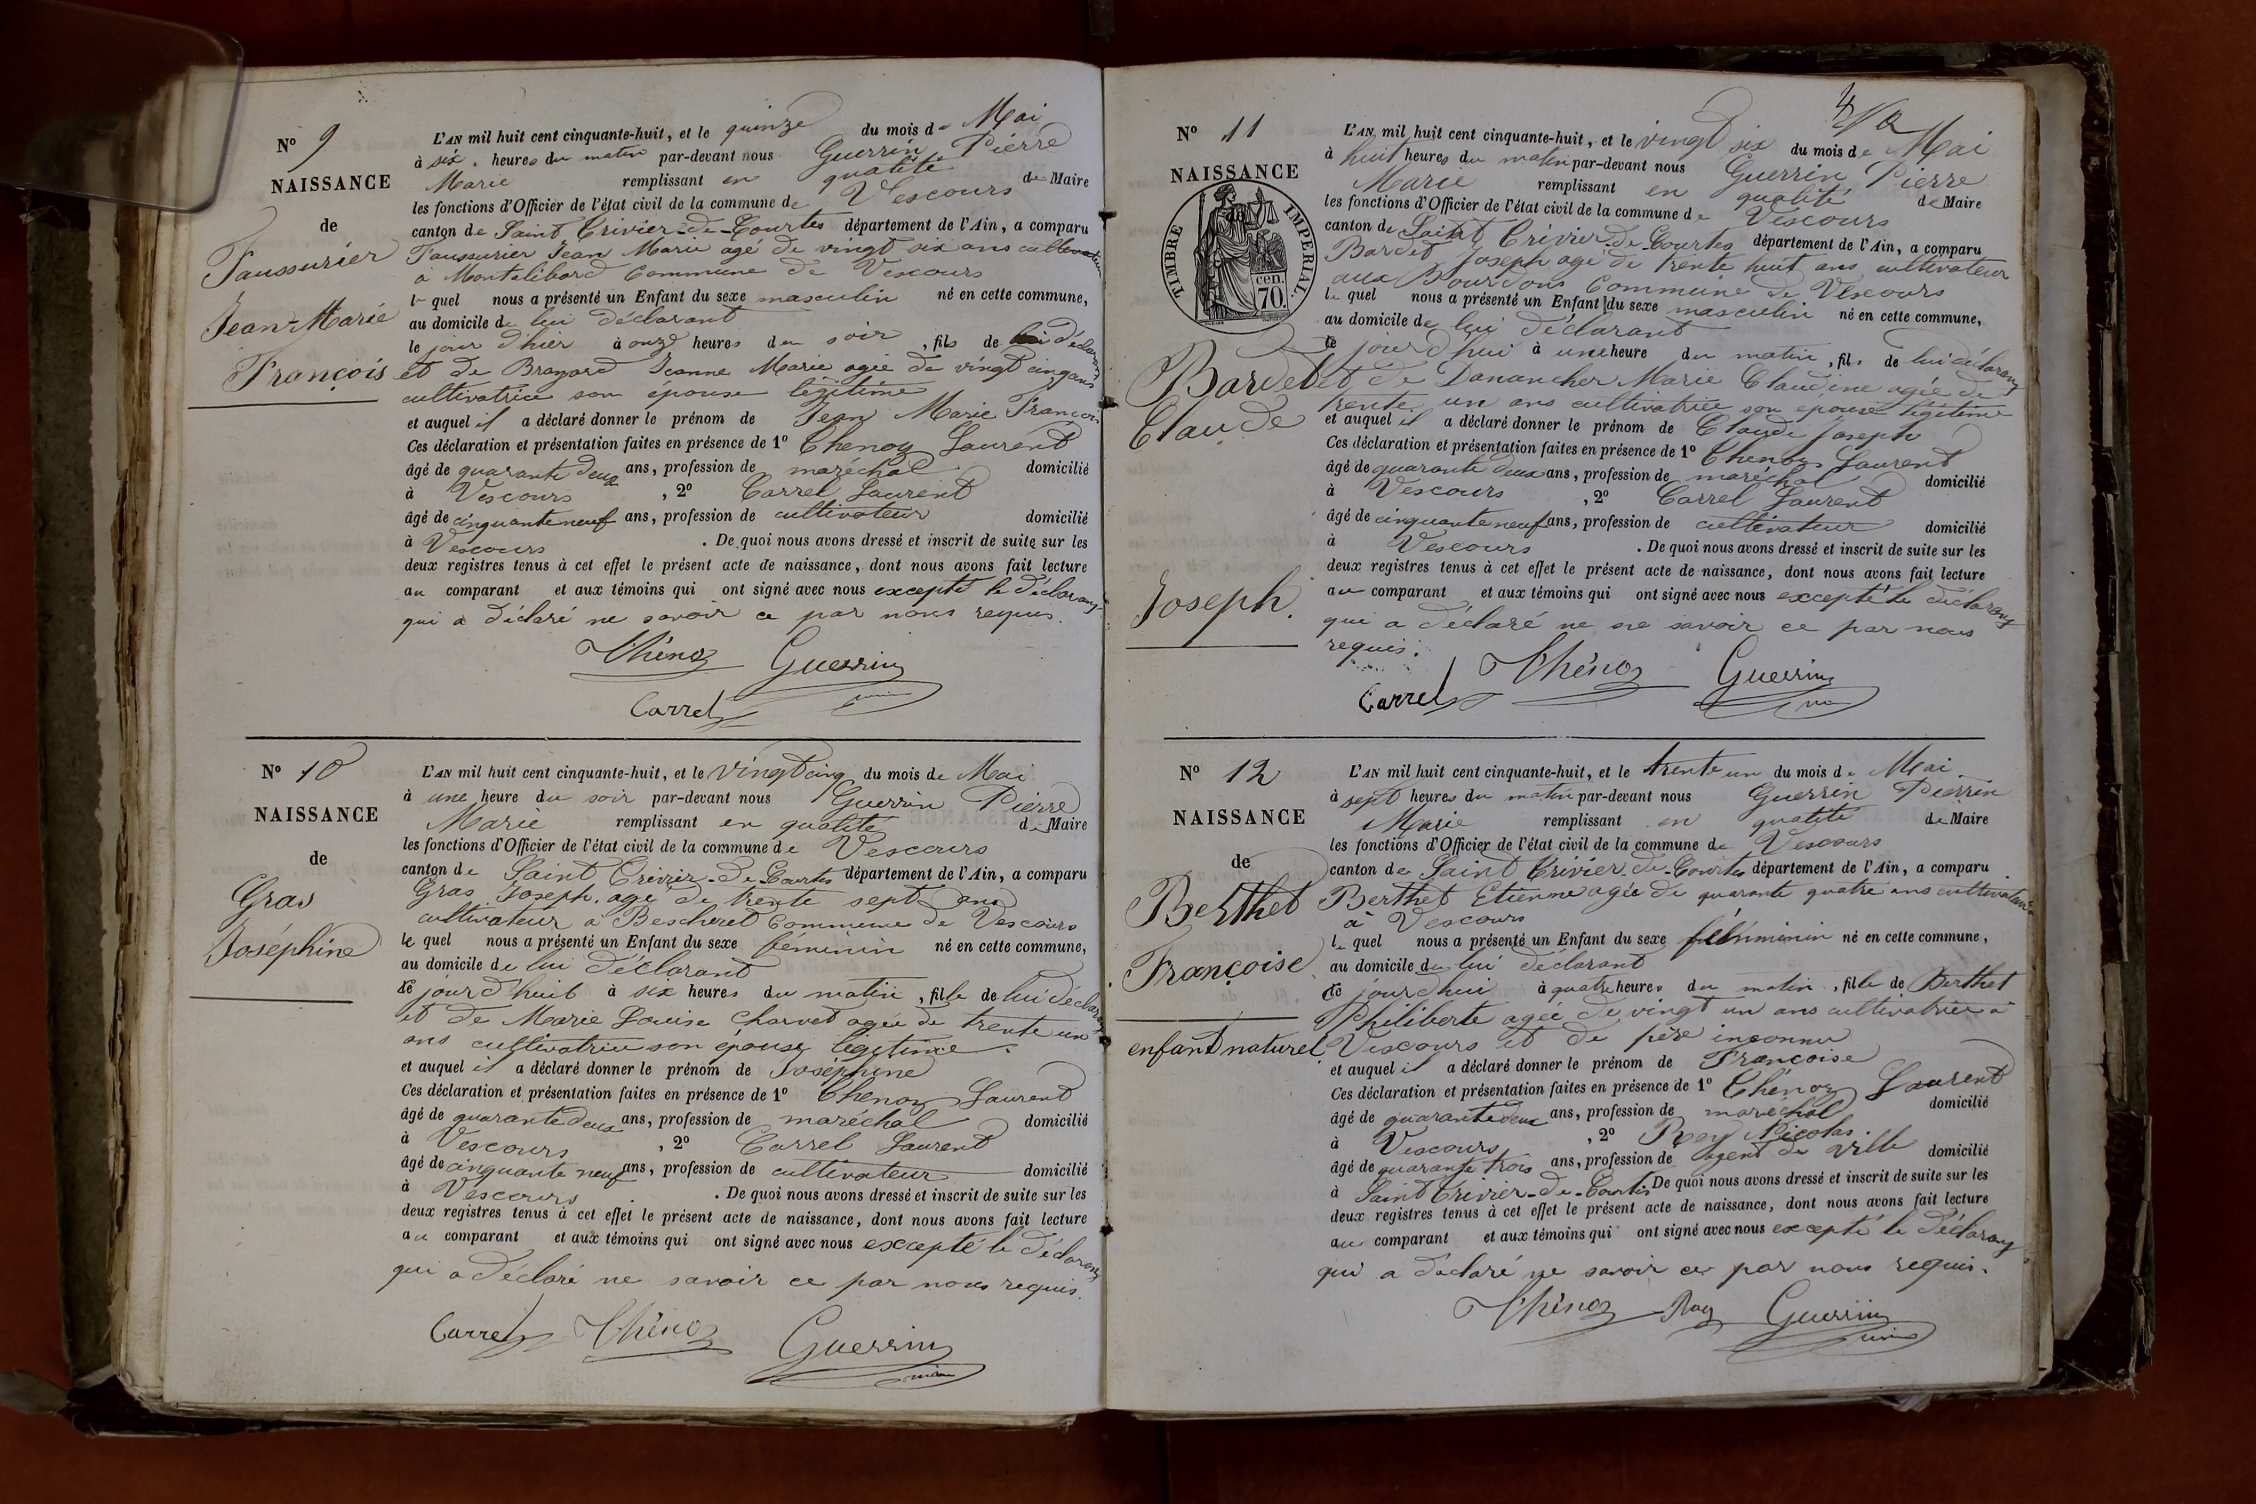 N° 9
NAISSANCE
de
Faussurier
Jean-Marie
François
L'AN mil huit cent cinquante-huit, et le quinze du mois de Mai
à six heures du matin par-devant nous Guerrin Pierre
Marie remplissant en qualité de Maire
les fonctions d'Officier de l'état civil de la commune de Vescours
canton de Saint Trivier-de-Courtes département de l'Ain, a comparu
Faussurier Jean Marie agé de vingt six ans cultivateur
à Montalibord Commune de Vescours
lequel nous a présenté un Enfant du sexe masculin né en cette commune,
au domicile de lui déclarant
le jour d'hier à onze heures du soir, fils de lui déclarant
et de Brayard Jeanne Marie agée de vingt cinq ans
cultivatrice son épouse légitime
et auquel il a déclaré donner le prénom de Jean Marie François
Ces déclaration et présentation faites en présence de 1° Thenoz Laurent
âgé de quarante deux ans, profession de maréchal domicilié
à Vescours, 2° Carrel Laurent
âgé de cinquante neuf ans, profession de cultivateur domicilié
à Vescours. De quoi nous avons dressé et inscrit de suite sur les
deux registres tenus à cet effet le présent acte de naissance, dont nous avons fait lecture
au comparant et aux témoins qui ont signé avec nous excepté le déclarant
qui a déclaré ne savoir ce par nous requis.
Thénoz Guerrin
Carrel maire
N° 10
NAISSANCE
de
Gras
Joséphine
L'AN mil huit cent cinquante-huit, et le vingt cinq du mois de Mai
à une heure du soir par-devant nous Guerrin Pierre
Marie remplissant en qualité de Maire
les fonctions d'Officier de l'état civil de la commune de Vescours
canton de Saint Trivier-de-Courtes département de l'Ain, a comparu
Gras Joseph, agé de trente sept ans
cultivateur à Bescheret Commune de Vescours
lequel nous a présenté un Enfant du sexe féminin né en cette commune,
au domicile de lui déclarant
ce jourd'huit à six heures du matin, fille de lui déclarant
et de Marie Louise Charvet agée de trente un
ans cultivatrice son épouse légitime.
et auquel il a déclaré donner le prénom de Joséphine
Ces déclaration et présentation faites en présence de 1° Thenoz Laurent
âgé de quarante deux ans, profession de maréchal domicilié
à Vescours, 2° Carrel Laurent
âgé de cinquante neuf ans, profession de cultivateur domicilié
à Vescours. De quoi nous avons dressé et inscrit de suite sur les
deux registres tenus à cet effet le présent acte de naissance, dont nous avons fait lecture
au comparant et aux témoins qui ont signé avec nous excepté le déclarant
qui a déclaré ne savoir ce par nous requis.
Carrel Thénoz Guerrin
maire
N° 11
NAISSANCE
TIMBRE IMPERIAL.
cen.
70.
Bardet
Claude
Joseph.
L'AN mil huit cent cinquante-huit, et le vingt six du mois de Mai
à huit heures du matin par-devant nous Guerrin Pierre
Marie remplissant en qualité de Maire
les fonctions d'Officier de l'état civil de la commune de Vescours
canton de Saint Trivier-de-Courtes département de l'Ain, a comparu
Bardet Joseph agé de trente huit ans cultivateur
aux Bourdons Commune de Vescours
lequel nous a présenté un Enfant du sexe masculin né en cette commune,
au domicile de lui déclarant
ce jourd'hui à une heure du matin, fils de lui déclarant
et de Danancher Marie Claudine agée de
trente un ans cultivatrice son épouse légitime
et auquel il a déclaré donner le prénom de Claude Joseph
Ces déclaration et présentation faites en présence de 1° Thenoz Laurent
âgé de quarante deux ans, profession de maréchal domicilié
à Vescours, 2° Carrel Laurent
âgé de cinquante neuf ans, profession de cultivateur domicilié
à Vescours. De quoi nous avons dressé et inscrit de suite sur les
deux registres tenus à cet effet le présent acte de naissance, dont nous avons fait lecture
au comparant et aux témoins qui ont signé avec nous excepté le déclarant
qui a déclaré ne savoir ce par nous
requis.
Carrel Thénoz Guerrin
N° 12
NAISSANCE
de
Berthet
Françoise
enfant naturel
L'AN mil huit cent cinquante-huit, et le trente un du mois de Mai
à sept heures du matin par-devant nous Guerrin Pierrin
Marie remplissant en qualité de Maire
les fonctions d'Officier de l'état civil de la commune de Vescours
canton de Saint Trivier-de-Courtes département de l'Ain, a comparu
Berthet Etienne agée de quarante quatre ans cultivateur
à Vescours
lequel nous a présenté un Enfant du sexe féminin né en cette commune,
au domicile de lui déclarant
ce jourd'hui à quatre heures du matin, fille de Berthet
Philiberte agée de vingt un ans cultivatrice à
Vescours et de père inconnu
et auquel il a déclaré donner le prénom de Françoise
Ces déclaration et présentation faites en présence de 1° Thénoz Laurent
âgé de quarante deux ans, profession de maréchal domicilié
à Vescours, 2° Roy Nicolas
âgé de quarante trois ans, profession de agent de ville domicilié
à Saint Trivier-de-Courtes. De quoi nous avons dressé et inscrit de suite sur les
deux registres tenus à cet effet le présent acte de naissance, dont nous avons fait lecture
au comparant et aux témoins qui ont signé avec nous excepté le déclarant
qui a déclaré ne savoir ce par nous requis.
Thénoz Roy Guerrin